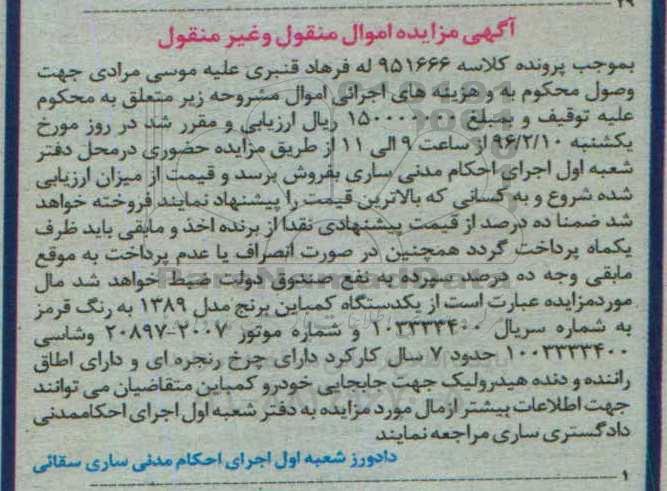 ۲۹
آگهی مزایده اموال منقول وغیر منقول
بموجب پرونده کلاسه ۹۵۱۶۶۶ له فرهاد قنبری علیه موسی مرادی جهت
وصول محکوم به و هزینه های اجرائی اموال مشروحه زیر متعلق به محکوم
علیه توقیف و بمبلغ ۱۵۰۰۰۰۰۰۰۰ ریال ارزیابی و مقرر شد در روز مورخ
یکشنبه ۹۶/۲/۱۰ از ساعت ۹ الی ۱۱ از طریق مزایده حضوری درمحل دفتر
شعبه اول اجرای احکام مدنی ساری بفروش برسد و قیمت از میزان ارزیابی
شده شروع و به کسانی که بالاترین قیمت را پیشنهاد نمایند فروخته خواهد
شد ضمنا ده درصد از قیمت پیشنهادی نقدا از برنده اخذ و مابقی باید ظرف
یکماه پرداخت گردد همچنین در صورت انصراف یا عدم پرداخت به موقع
مابقی وجه ده درصد سپرده به نفع صندوق دولت ضبط خواهد شد مال
موردمزایده عبارت است از یکدستگاه کمباین برنج مدل ۱۳۸۹ به رنگ قرمز
به شماره سریال ۱۰۳۳۳۳۴۰۰ و شماره موتور ۲۰۰۷-۲۰۸۹۷ وشاسی
۱۰۰۳۳۳۳۴۰۰ حدود ۷ سال کارکرد دارای چرخ زنجره ای و دارای اطاق
راننده و دنده هیدرولیک جهت جابجایی خودرو کمباین متقاضیان می توانند
جهت اطلاعات بیشتر ازمال مورد مزایده به دفتر شعبه اول اجرای احکاممدنی
دادگستری ساری مراجعه نمایند
دادورز شعبه اول اجرای احکام مدنی ساری سقائی
۱